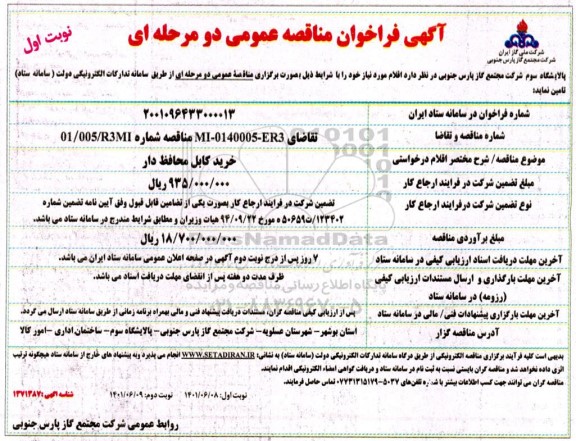 آگهی فراخوان مناقصه عمومی دو مرحله ای
نوبت اول
شرکت ملی گاز ایران
شرکت مجتمع گاز پارس جنوبی
پالایشگاه سوم شرکت مجتمع گاز پارس جنوبی در نظر دارد اقلام مورد نیاز خود را با شرایط ذیل بصورت برگزاری مناقصهٔ عمومی دو مرحله ای از طریق سامانه تدارکات الکترونیکی دولت ( سامانه ستاد)
تامین نماید:
شماره فراخوان در سامانه ستاد ایران
۲۰۰۱۰۹۶۴۳۳۰۰۰۰۱۳
شماره مناقصه و تقاضا
تقاضای MI-0140005-ER3 مناقصه شماره 01/005/R3MI
موضوع مناقصه/ شرح مختصر اقلام درخواستی
خرید کابل محافظ دار
مبلغ تضمین شرکت در فرایند ارجاع کار
۹۳۵/۰۰۰/۰۰۰ ریال
نوع تضمین شرکت درفرایند ارجاع کار
تضمین شرکت در فرایند ارجاع کار بصورت یکی از تضامین قابل قبول وفق آیین نامه تضمین شماره
۱۲۳۴۰۲/ت۵۰۶۵۹ه مورخ ۹۴/۰۹/۲۲ هیات وزیران و مطابق شرایط مندرج در سامانه ستاد می باشد.
مبلغ برآوردی مناقصه
۱۸/۷۰۰/۰۰۰/۰۰۰ ریال
آخرین مهلت دریافت اسناد ارزیابی کیفی در سامانه ستاد
۷ روز پس از درج نوبت دوم آگهی در صفحه اعلان عمومی سامانه ستاد ایران می باشد.
آخرین مهلت بارگذاری و ارسال مستندات ارزیابی کیفی
(رزومه) در سامانه ستاد
ظرف مدت دو هفته پس از انقضای مهلت دریافت اسناد می باشد.
آخرین مهلت بارگزاری پیشنهادات فنی/ مالی در سامانه ستاد
پس از ارزیابی کیفی مناقصه گران، مستندات دریافت پیشنهاد فنی و مالی بهمراه برنامه زمانی از طریق سامانه ستاد ارسال می گردد.
آدرس مناقصه گزار
استان بوشهر- شهرستان عسلویه- شرکت مجتمع گاز پارس جنوبی- پالایشگاه سوم- ساختمان اداری -امور کالا
بدیهی است کلیه فرآیند برگزاری مناقصه الکترونیکی از طریق درگاه سامانه تدارکات الکترونیکی دولت (سامانه ستاد) به نشانی: WWW.SETADIRAN.IR انجام می پذیرد ونه پیشنهاد های خارج از سامانه ستاد هیچگونه ترتیب
اثری داده نخواهد شد و مناقصه گران بایستی نسبت به ثبت نام در سامانه ستاد و دریافت گواهی امضاء الکترونیکی اقدام نمایند.
مناقصه گران می توانند جهت کسب اطلاعات بیشتر با شماره تلفن های ۵۰۳۷-۰۷۷۳۱۳۱۵۱۷۹ تماس حاصل فرمایند.
نوبت اول: ۱۴۰۱/۰۶/۰۸ نوبت دوم: ۱۴۰۱/۰۶/۰۹
شناسه آگهی: ۱۳۷۱۳۸۷
روابط عمومی شرکت مجتمع گاز پارس جنوبی